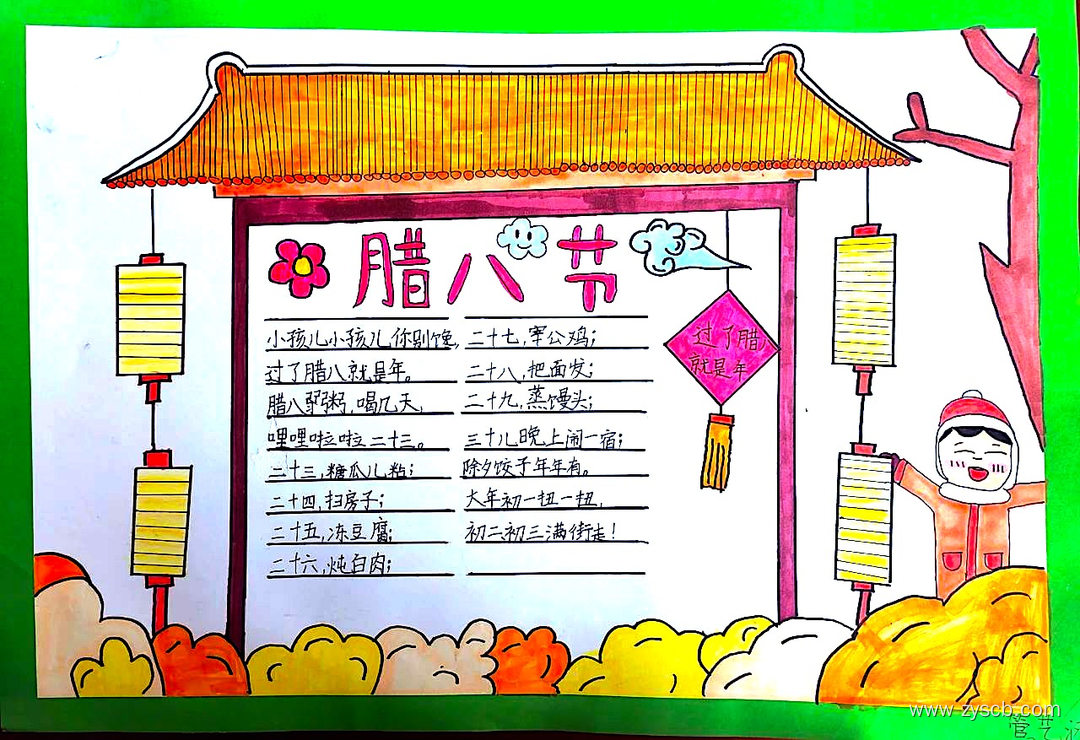 腊八节
小孩儿小孩儿你别馋,
过了腊八就是年。
腊八粥,喝几天,
哩哩啦啦二十三。
二十三,糖瓜儿粘;
二十四,扫房子;
二十五,冻豆腐;
二十六,炖白肉;
二十七,宰公鸡;
二十八,把面发;
二十九,蒸馒头;
三十儿晚上闹一宿;
除夕饺子年年有。
大年初一扭一扭,
初二初三满街走!
过了腊八
就是年
www.zyscb.com